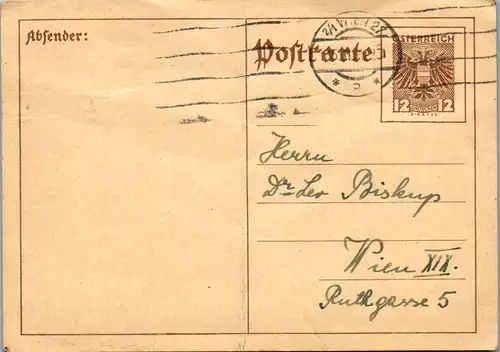 Absender:
Postkarte
ÖSTERREICH
12 12
Herrn
Dr Leo Biskup
Wien XIX.
Ruthgasse 5